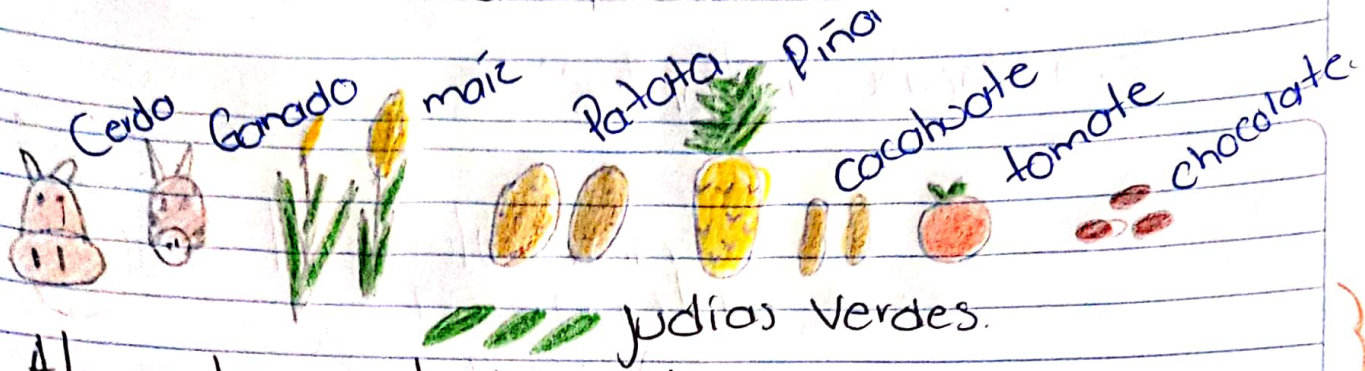 Cerdo Ganado maíz Patata Piña cacahuate tomate chocolate.
Judías Verdes.